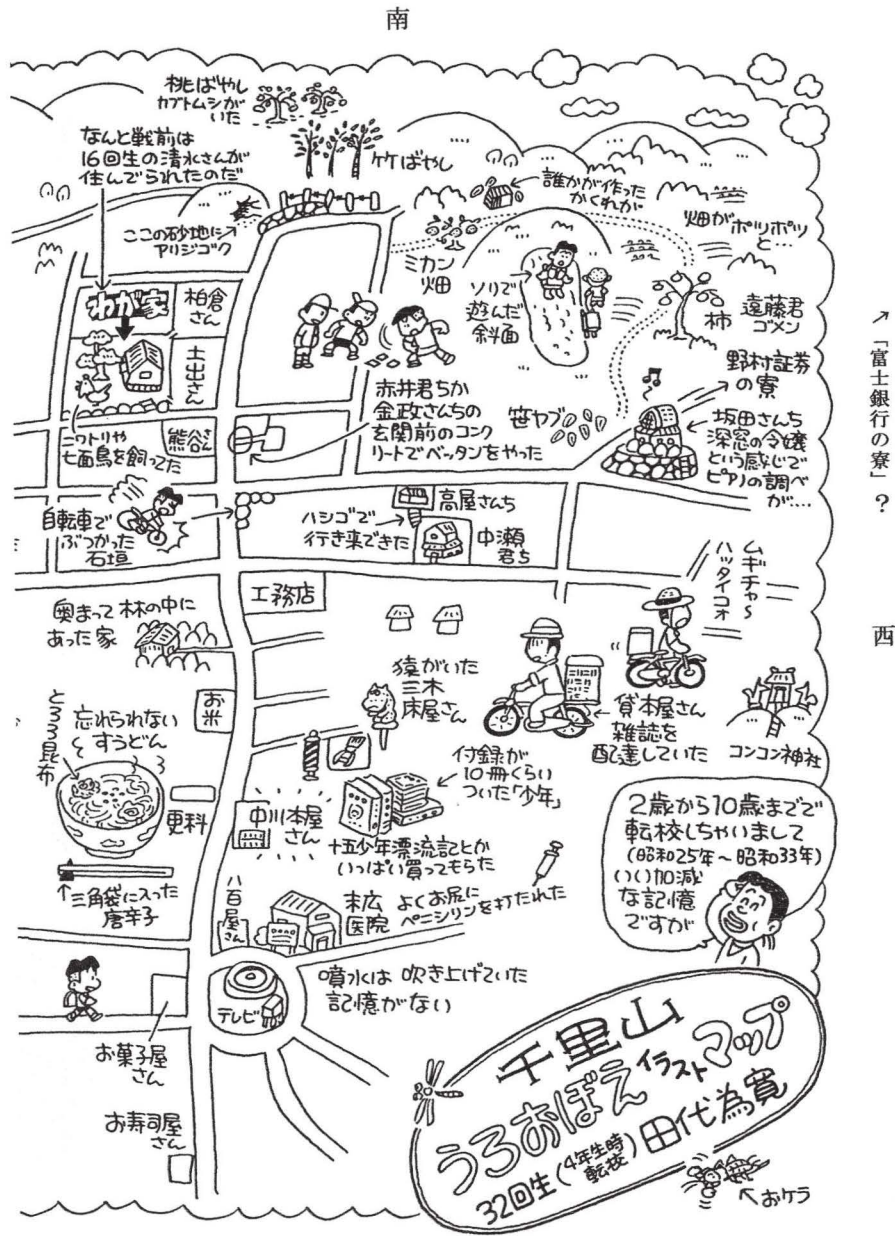 南
桃ばやし
カブトムシが
いた
なんと戦前は
16回生の清水さんが
住んでられたのだ
竹ばやし
誰かが作った
かくれが
畑が
ポツポツ
と…
ここの砂地に
アリジゴク
ミカン
畑
ソリで
遊んだ
斜面
柿
遠藤君
ゴメン
わが家
柏倉
さん
土出さん
ニワトリや
七面鳥を飼ってた
熊谷さん
赤井君ちか
金政さんちの
玄関前のコンク
リートでベッタンをやった
笹ヤブ
野村証券
の寮
坂田さんち
深窓の令嬢
という感じで
ピアノの調べ
が….
↗「富士銀行の寮」?
自転車で
ぶつかった
石垣
ハシゴで
行き来できた
高屋さんち
中瀬
君ち
ムギチャ〜
ハッタイコォ
西
工務店
奥まって林の中に
あった家
猿がいた
三木
床屋さん
貸本屋さん
雑誌を
配達していた
コンコン神社
お米
とろろ昆布
忘れられない
すうどん
更科
三角袋に入った
唐辛子
中川本屋
さん
付録が
10冊くらい
ついた「少年」
十五少年漂流記とか
いっぱい買ってもらった
2歳から10歳までで
転校しちゃいまして
(昭和25年〜昭和33年)
いい加減
な記憶
ですが
八百屋さん
末広
医院
よくお尻に
ペニシリンを打たれた
テレビ
噴水は吹き上げていた
記憶がない
お菓子屋
さん
お寿司屋
さん
千里山
うろおぼえイラストマップ
32回生(4年生時転校)田代為寛
おケラ